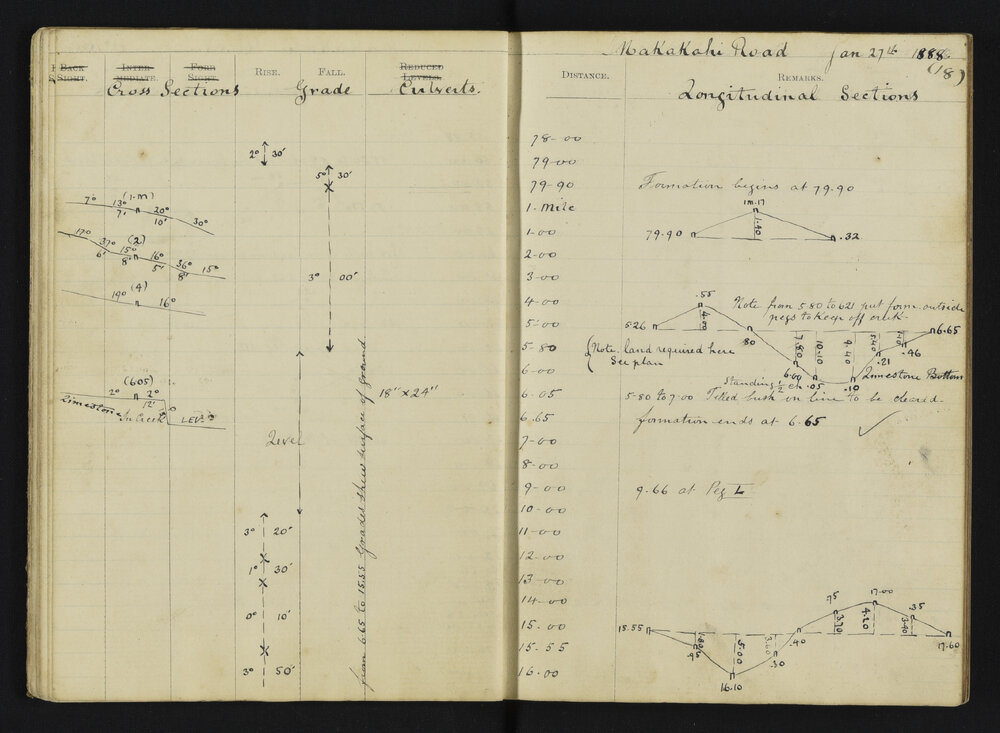 Back Sight.
Inter-mediate.
Fore Sight.
Rise.
Fall.
Reduced Levels.
Cross Sections
Grade
Culverts.
2° 30'
5° 30'
(1.M)
7° 13° 20° 30°
7' 10'
(2)
17° 37° 15° 16° 36° 15°
6' 8' 5' 8'
3° 00'
(4)
19° 16°
(605)
2° 2°
12'
Limestone
In Creek
LEV.
18" x 24"
Level
3° 20'
1° 30'
0° 10'
3° 50'
from 6.65 to 15.55 Grades shew surface of ground
Makakahi Road Jan 27th 1888
(18)
Distance.
Remarks.
Longitudinal Sections
78-00
79-00
79-90 Formation begins at 79.90
1. Mile
1m.17
79.90 1.40 .32
1-00
2-00
3-00
4-00
.55
Note from 5.80 to 6.21 put form. outside
pegs to keep off creek.
5-00
5.26 4.00 .80 6.65
7.80 10.10 9.40 5.40 1.40
5-80
(Note. land required here
See plan
.46
.21
6-00
6.00 .05 .10 Limestone Bottom
Standing ½ ch.
6-05
5-80 to 7-00 Felled bush on line to be cleared.
6.65 formation ends at 6.65
7-00
8-00
9-00 9.66 at Peg L
10-00
11-00
12-00
13-00
14-00
15.00
15.55
16.00
.75 17.00 .35
3.70 4.20 3.40
15.55 .40 17.60
5.00 3.60
.95 .30
16.10